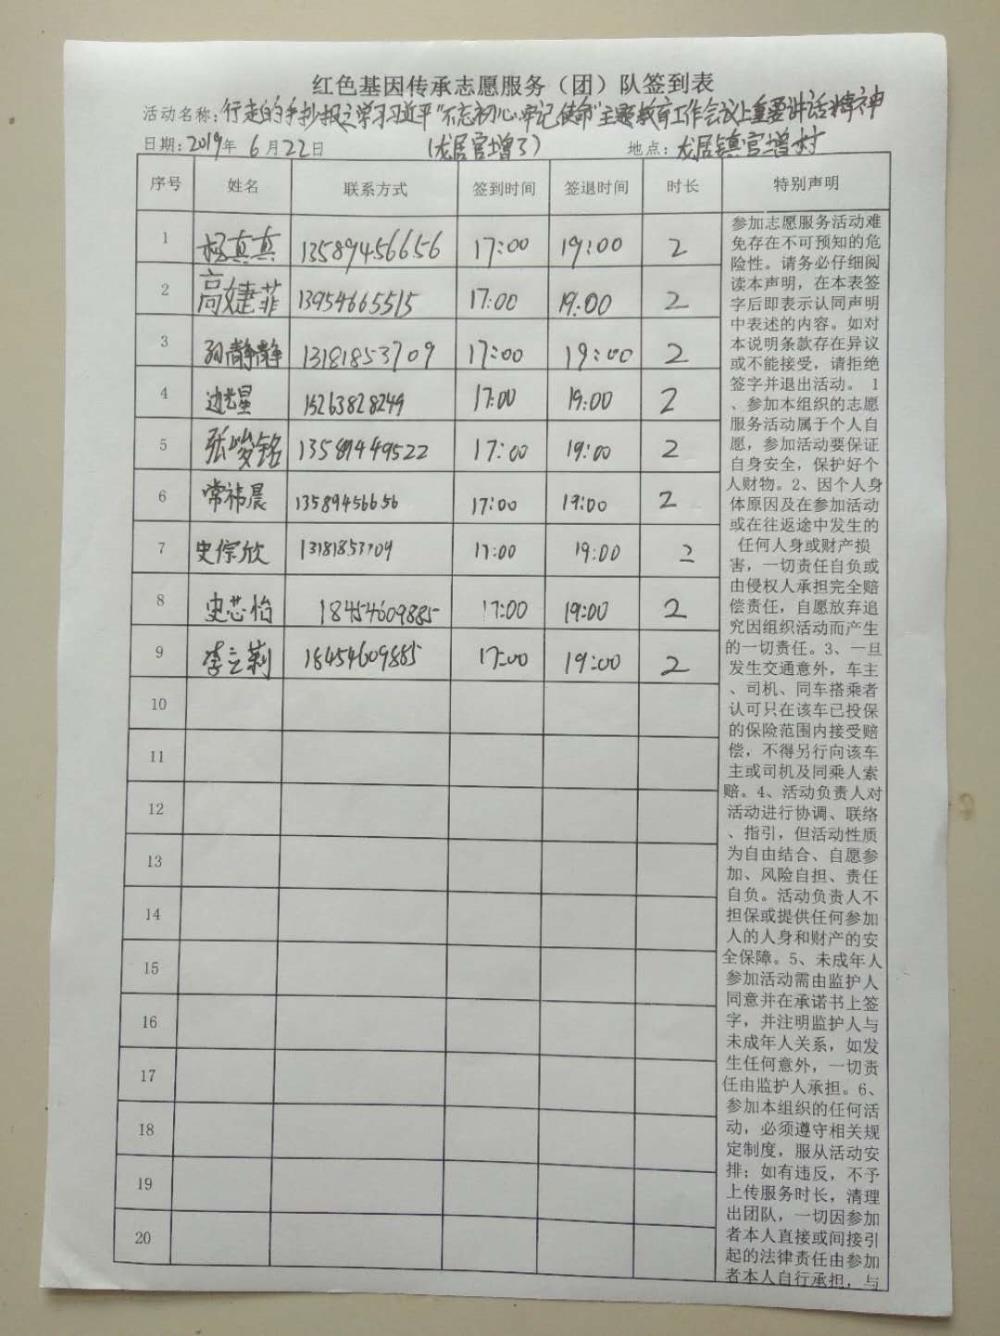 红色基因传承志愿服务（团）队签到表
活动名称：行走的手抄报之学习习近平“不忘初心、牢记使命”主题教育工作会议上重要讲话精神
日期：2019年 6月22日 （龙居官增3） 地点：龙居镇官增村
序号 姓名 联系方式 签到时间 签退时间 时长 特别声明
1 杨真真 13589456656 17:00 19:00 2
2 高婕菲 13954665515 17:00 19:00 2
3 孙静静 13181853709 17:00 19:00 2
4 边艺星 15263828249 17:00 19:00 2
5 张峻铭 13589449522 17:00 19:00 2
6 常祎晨 13589456656 17:00 19:00 2
7 史倧欣 13181853709 17:00 19:00 2
8 史芯怡 18454609885 17:00 19:00 2
9 李立莉 18454609885 17:00 19:00 2
10
11
12
13
14
15
16
17
18
19
20
参加志愿服务活动难
免存在不可预知的危
险性。请务必仔细阅
读本声明，在本表签
字后即表示认同声明
中表述的内容。如对
本说明条款存在异议
或不能接受，请拒绝
签字并退出活动。 1
、参加本组织的志愿
服务活动属于个人自
愿，参加活动要保证
自身安全，保护好个
人财物。2、因个人身
体原因及在参加活动
或在往返途中发生的
任何人身或财产损
害，一切责任自负或
由侵权人承担完全赔
偿责任，自愿放弃追
究因组织活动而产生
的一切责任。3、一旦
发生交通意外，车主
、司机、同车搭乘者
认可只在该车已投保
的保险范围内接受赔
偿，不得另行向该车
主或司机及同乘人索
赔。4、活动负责人对
活动进行协调、联络
、指引，但活动性质
为自由结合、自愿参
加、风险自担、责任
自负。活动负责人不
担保或提供任何参加
人的人身和财产的安
全保障。5、未成年人
参加活动需由监护人
同意并在承诺书上签
字，并注明监护人与
未成年人关系，如发
生任何意外，一切责
任由监护人承担。6、
参加本组织的任何活
动，必须遵守相关规
定制度，服从活动安
排；如有违反，不予
上传服务时长，清理
出团队，一切因参加
者本人直接或间接引
起的法律责任由参加
者本人自行承担，与